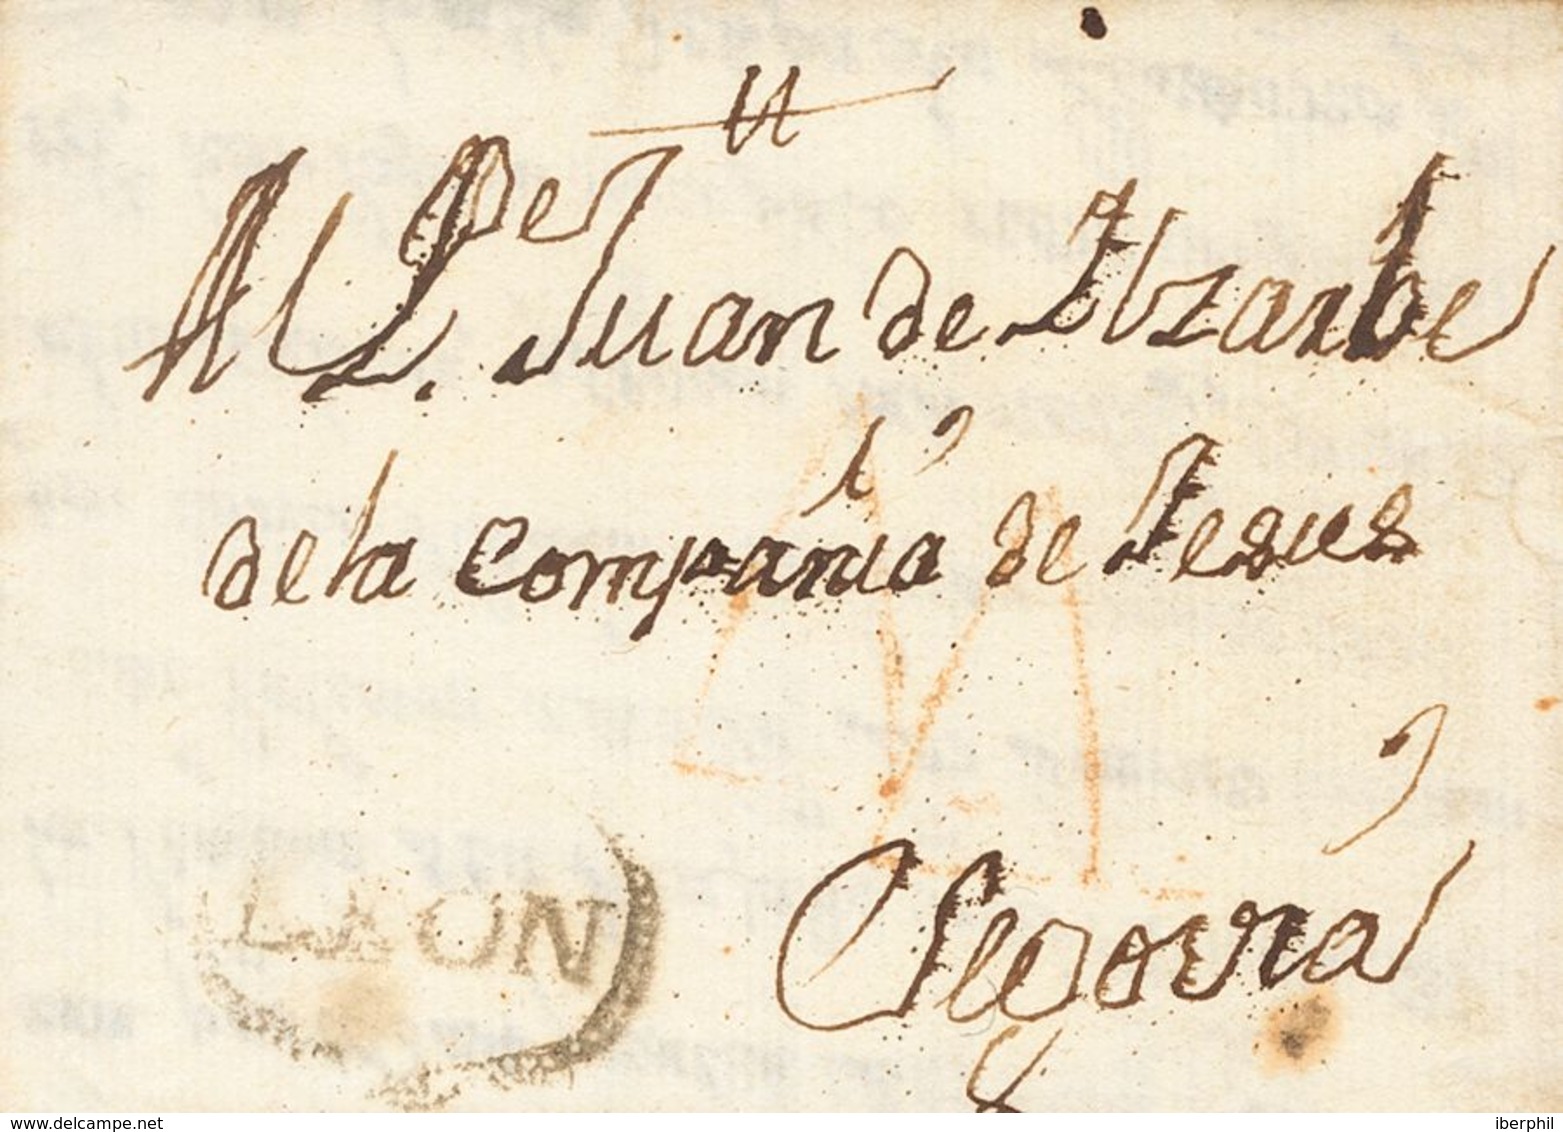 ††
Al P.e Juan de Ytzarbe
de la Compania de Jesus
Segovia
LEON
www.delcampe.net
iberphil